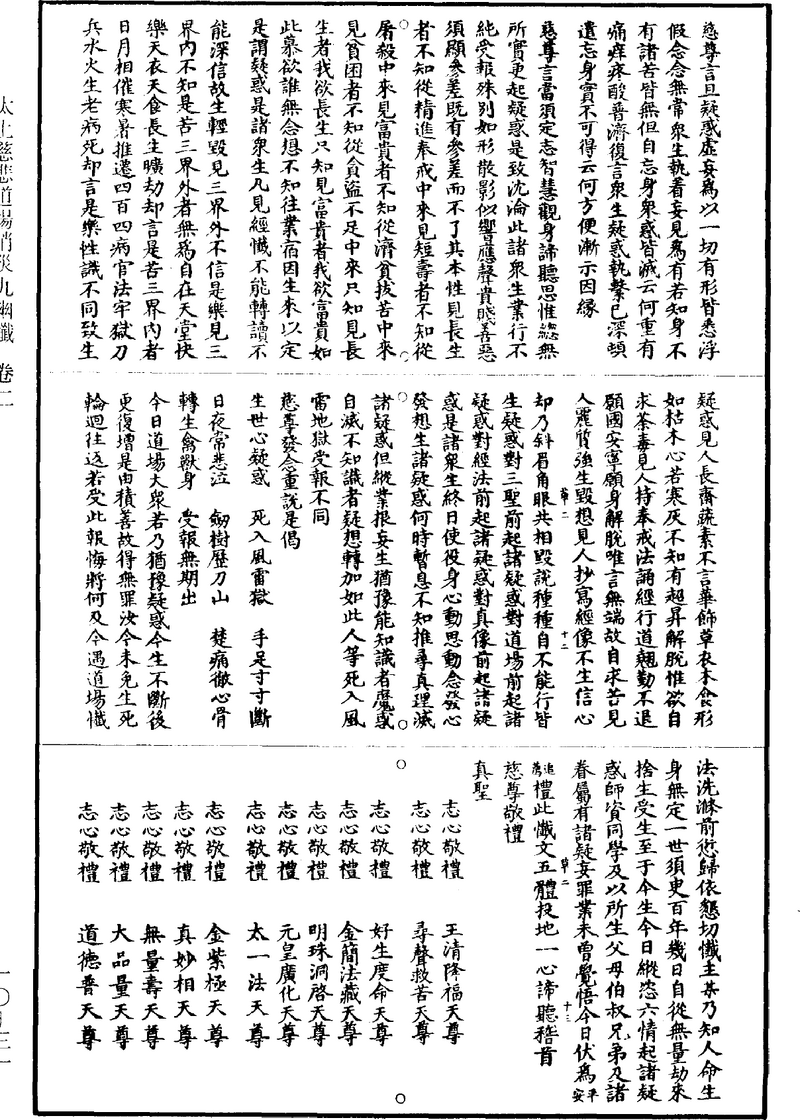 慈尊言且疑惑虛妄為以一切有形皆悉浮
假念念無常衆生執着妄見為有若知身不
有諸苦皆無但自忘身衆惑皆滅云何重有
痛痒疼酸普濟復言衆生疑惑執繫已深頓
遣忘身實不可得云何方便漸示因緣
慈尊言當須定志智慧觀身諦聽思惟總無
所實更起疑惑是致沈淪此諸衆生業行不
純受報殊別如形散影似響應聲貴賤善惡
須顯參差既有參差而不了其本性見長生
者不知從精進奉戒中來見短壽者不知從
屠殺中來見富貴者不知從濟貧拔苦中來
見貧困者不知從貪盜不足中來只知見長
生者我欲長生只知見富貴者我欲富貴如
此慕欲誰無念想不知往業宿因生來以定
是謂疑惑是諸衆生凡見經懺不能轉讀不
能深信故生輕毀見三界外不信是樂見三
界內不知是苦三界外者無為自在天堂快
樂天衣天食長生曠劫却言是苦三界內者
日月相催寒暑推遷四百四病官法牢獄刀
兵水火生老病死却言是樂性識不同致生
疑惑見人長齋蔬素不言華飾草衣木食形
如枯木心若寒灰不知有超昇解脫惟欲自
求荼毒見人持奉戒法誦經行道翹勤不退
願國安寧願身解脫唯言無端故自求苦見
人羅縠強生毀想見人抄寫經像不生信心
却乃斜眉角眼共相毀說種種自不能行皆
生疑惑對三聖前起諸疑惑對道場前起諸
疑惑對經法前起諸疑惑對真像前起諸疑
惑是諸衆生終日使役身心動思動念發心
發想生諸疑惑何時暫息不知推尋真理滅
諸疑惑但縱業根妄生猶豫能知識者魔惑
自滅不知識者疑想轉加如此人等死入風
雷地獄受報不同
慈尊發念重說是偈
生世心疑惑　死入風雷獄　手足寸寸斷
日夜常悲泣　劒樹歷刀山　楚痛徹心骨
轉生禽獸身　受報無期出
今日道場大衆若乃猶豫疑惑今生不斷後
更復增是由積善故得無罪汝今未免生死
輪迴往返若受此報悔將何及今遇道場懺
法洗滌前愆歸依懇切懺主某乃知人命生
身無定一世須臾百年幾日自從無量劫來
捨生受生至于今生今日縱恣六情起諸疑
惑師資同學及以所生父母伯叔兄弟及諸
眷屬有諸疑妄罪業未曾覺悟今日伏為平安
追薦禮此懺文五體投地一心諦聽稽首
慈尊敬禮
真聖
志心敬禮　王清降福天尊
志心敬禮　尋聲救苦天尊
志心敬禮　好生度命天尊
志心敬禮　金簡法藏天尊
志心敬禮　明珠洞啓天尊
志心敬禮　元皇廣化天尊
志心敬禮　太一法天尊
志心敬禮　金紫極天尊
志心敬禮　真妙相天尊
志心敬禮　無量壽天尊
志心敬禮　大品量天尊
志心敬禮　道德普天尊
太上慈悲道場消災九幽懺　卷二
一〇—三一
草二
十二
草二
十三